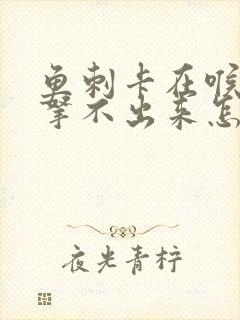 鱼刺卡在喉
拏不出来怎
夜光青柠